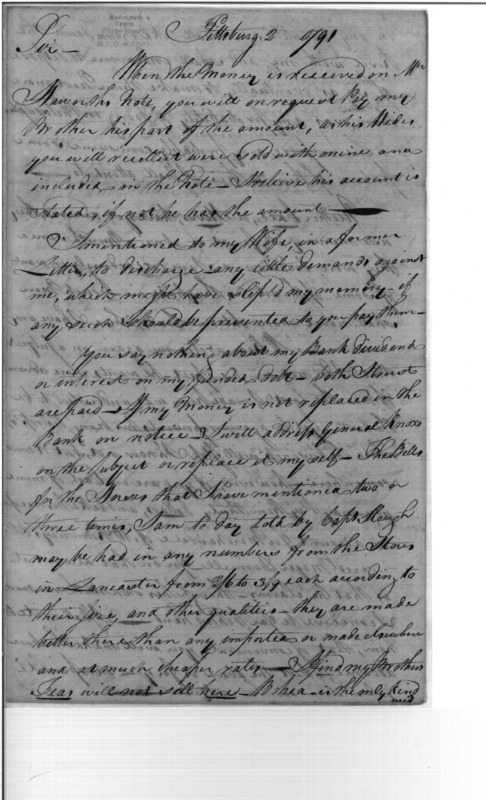 Pittsburg 2 1791
Sir —
When the Money is received on Mr
Haworths Note, you will on request Pay my
Brother his part of the amount, as his Hides
you will recollect were sold with mine and
included in the Note — I believe his account is
Stated, if not he has the amount —
I mentioned to my Wife, in a former
Letter, to discharge any little demands against
me, which might have slip'd my memory — if
any such should be presented to you pay them —
You say nothing about my Bank dividend
or interest on my funded debt — both I trust
are paid — If my Money is not replaced in the
Bank on notice — I will address General Knox
on the subject or replace it myself — The Bells
for the Horses that I have mentioned two or
three times, I am to day told by Capt Hough
may be had in any numbers from the Stores
in Lancaster from 2/6 to 3/9 each according to
their size, and other qualities — they are made
better there than any imported or made elsewhere
and at much cheaper rates — I find my Brothers
Teas will not sell here — Bohea is the only kind
used